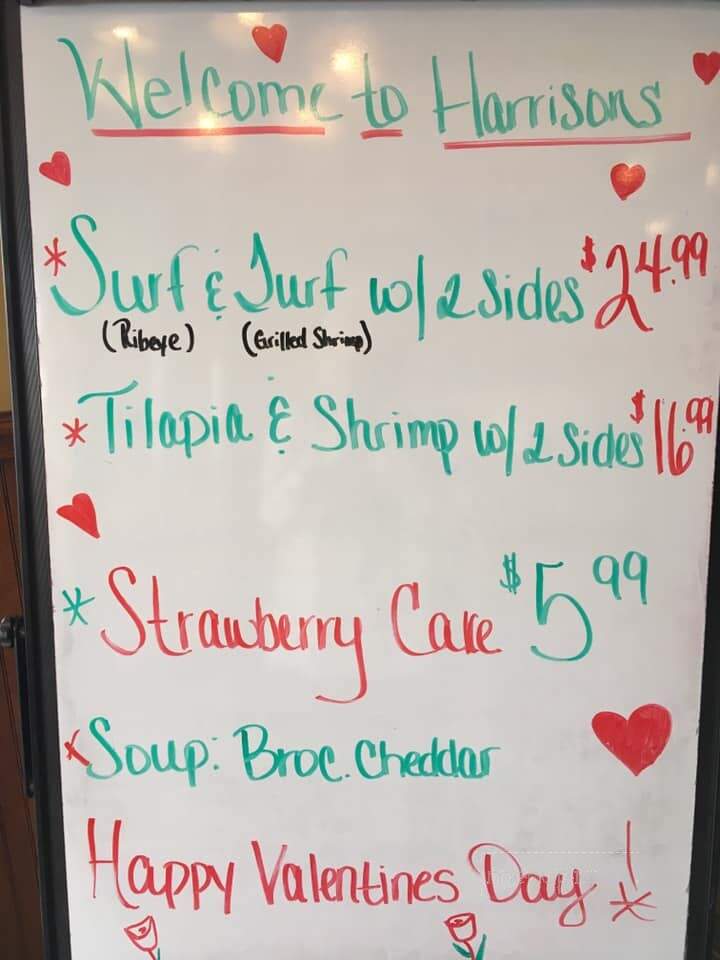 Welcome to Harrisons
* Surf & Turf w/ 2 sides $24.99
(Ribeye) (Grilled Shrimp)
* Tilapia & Shrimp w/ 2 sides $16.99
* Strawberry Cake $5.99
* Soup: Broc. Cheddar
Happy Valentines Day!